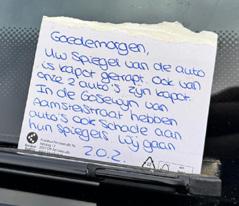 Goedemorgen,
Uw spiegel van de auto
is kapot getrapt. Ook van
onze 2 auto's zijn kapot.
In de Gosewyn van
Aamstelstraat hebben
auto's ook schade aan
hun spiegels wij gaan
20.2.